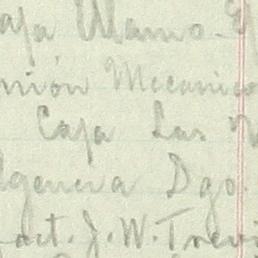 Caja Alamo.
Unión Mecanico
Caja Las
Dgo.
act. J. W. Trevi